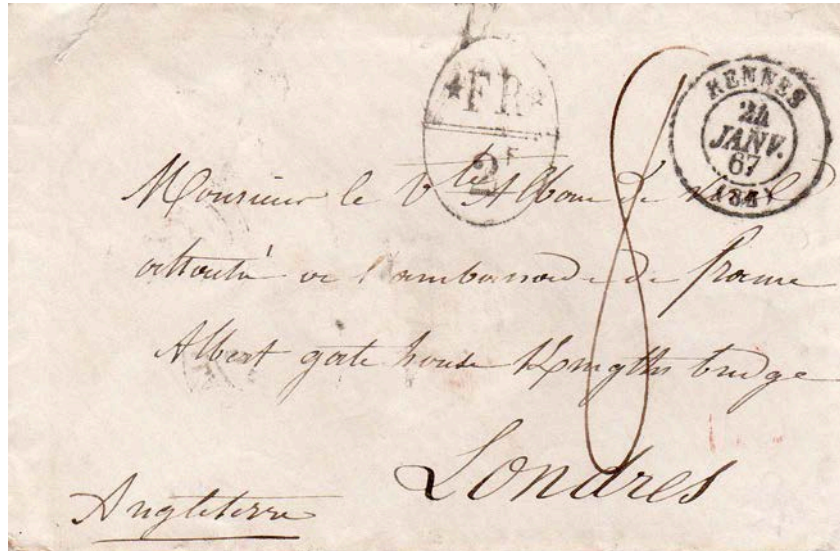 *FR*
2F
8
RENNES
24
JANV.
67
Monsieur le Vte Alban de
attaché a l'ambassade de france
Albert gate house Knigths bridge
Londres
Angleterre